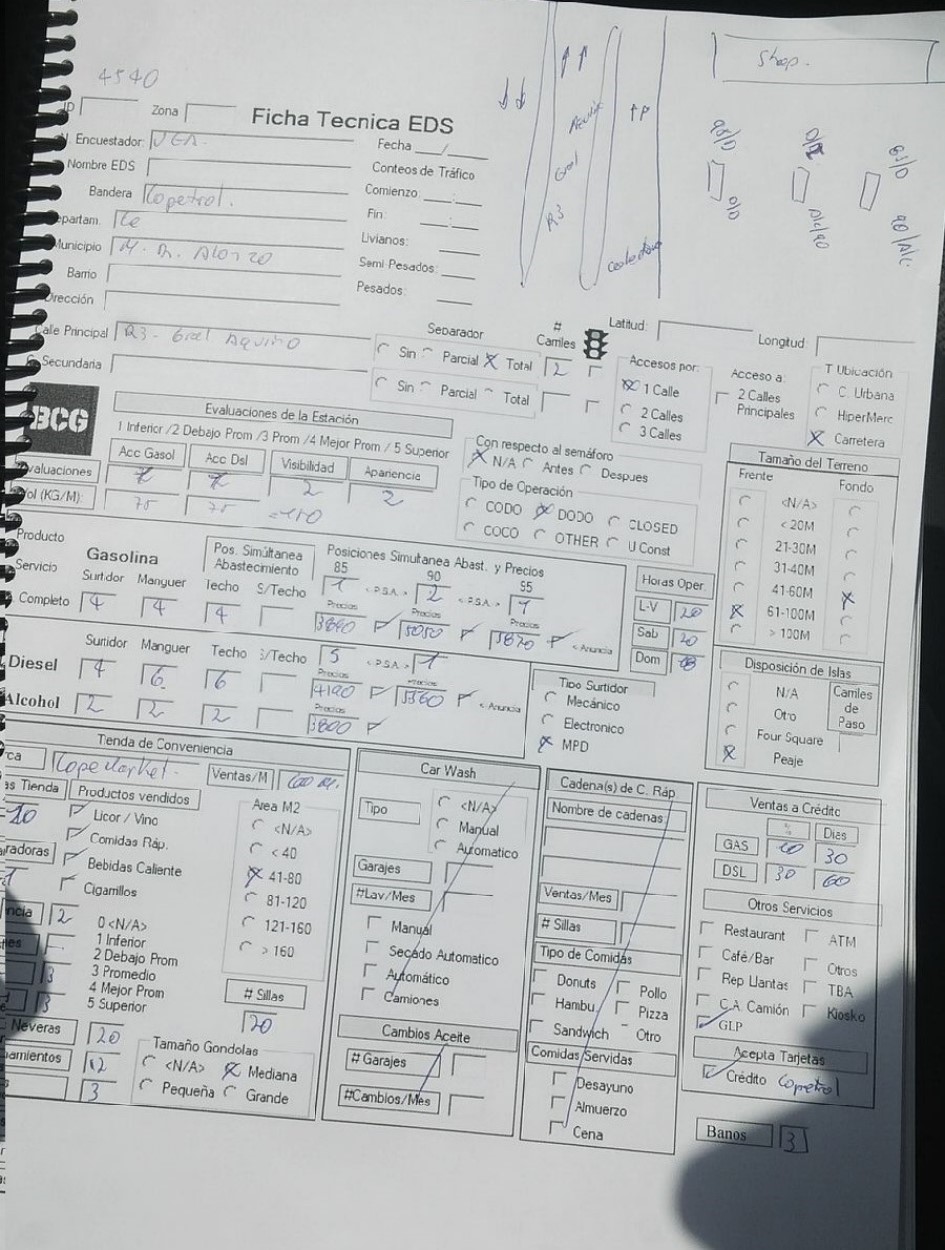 4540
Shop.
IP Zona Ficha Tecnica EDS
Encuestador: Fecha __/__
Nombre EDS Conteos de Tráfico
Bandera Copetrol. Comienzo: __:__
epartam. Ce Fin: __:__
Municipio M. R. Alonzo Livianos:
Barrio Semi-Pesados:
Dirección Pesados:
R3 Gral Aquino
↑P
colectora
95/D
D/D
85/D
Calle Principal R3 - Gral Aquino
Separador # Carriles
Latitud: Longitud:
Sin Parcial X Total 2
C. Secundaria
Sin Parcial Total
Accesos por:
X 1 Calle
2 Calles
3 Calles
Acceso a:
2 Calles
Principales
T Ubicación
C. Urbana
HiperMerc
X Carretera
BCG
Evaluaciones de la Estación
1 Inferior /2 Debajo Prom /3 Prom /4 Mejor Prom / 5 Superior
Acc Gasol Acc Dsl Visibilidad Apariencia
valuaciones 2 2
Vol (KG/M): 75 75
Con respecto al semáforo
X N/A Antes Despues
Tipo de Operación
CODO X DODO CLOSED
COCO OTHER U Const
Tamaño del Terreno
Frente Fondo
<N/A>
< 20M
21-30M
31-40M
41-60M X
X 61-100M
> 100M
Producto
Servicio
Gasolina
Pos. Simúltanea
Abastecimiento
Posiciones Simultanea Abast. y Precios
85 90 95
Surtidor Manguer Techo S/Techo 1 <P.S.A.> 2 <P.S.A.> 1
Completo 4 4 4
Precios Precios Precios
5050 < Anuncia
Horas Oper.
L-V 20
Sab 20
Dom
Surtidor Manguer Techo S/Techo 5 <P.S.A.> 1
Diesel 4 6 6
Precios Precios
4190 < Anuncia
Alcohol 2 2 2
Precios
3800
Tipo Surtidor
Mecánico
Electronico
X MPD
Disposición de Islas
N/A
Otro
Four Square
X Peaje
Carriles
de
Paso
Tienda de Conveniencia
rca Copemarket. Ventas/M
as Tienda Productos vendidos
10
Licor / Vino
Comidas Ráp.
radoras
Bebidas Caliente
1
Cigarrillos
ncia 2
0 <N/A>
1 Inferior
2 Debajo Prom
3 3 Promedio
4 Mejor Prom
3 5 Superior
Area M2
<N/A>
< 40
X 41-80
81-120
121-160
> 160
# Sillas
20
Neveras 20
pamientos 12
3
Tamaño Gondolas
<N/A> X Mediana
Pequeña Grande
Car Wash
Tipo
<N/A>
Manual
Automatico
Garajes
#Lav/Mes
Manual
Secado Automatico
Automático
Camiones
Cambios Aceite
# Garajes
#Cambios/Mes
Cadena(s) de C. Ráp
Nombre de cadenas
Ventas/Mes
# Sillas
Tipo de Comidas
Donuts Pollo
Hambu. Pizza
Sandwich Otro
Comidas Servidas
Desayuno
Almuerzo
Cena
Ventas a Crédito
% Dias
GAS 30
DSL 30 60
Otros Servicios
Restaurant ATM
Café/Bar Otros
Rep Llantas TBA
C.A. Camión Kiosko
GLP
Acepta Tarjetas
Crédito Copetrol
Banos 3